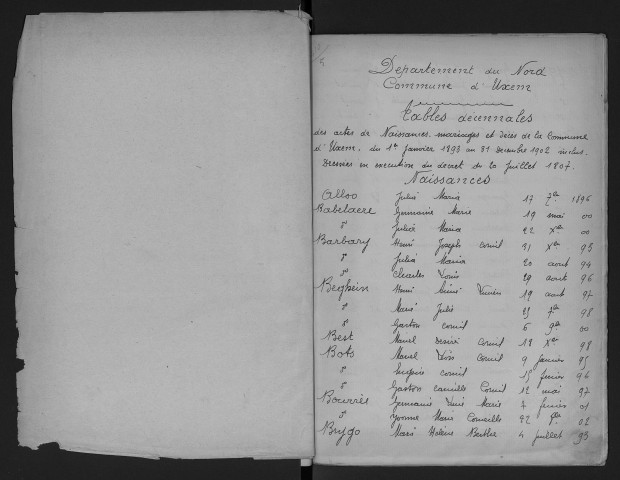 Département du Nord
Commune d'Uxem
Tables décennales
des actes de Naissances, mariages et décès de la Commune
d'Uxem, du 1er Janvier 1893 au 31 Décembre 1902 inclus.
Dressées en exécution du décret du 20 Juillet 1807.
Naissances
Alloo Julie Maria 17 7bre 1896
Babelaere Germaine Marie 19 mai 00
d° Julia Maria 22 Xbre 00
Barbary Henri Joseph Cornil 31 Xbre 93
d° Julia Maria 20 août 94
d° Charles Louis 29 août 96
Beghein Henri Lucien 19 août 97
d° Marie Julie 25 7bre 98
d° Gaston Cornil 6 9bre 00
Best Marcel Désiré Cornil 18 Xbre 98
Bots Marcel Cornil 9 janvier 95
d° Cornil 15 février 96
d° Gaston Camille Cornil 12 mai 97
Bourrès Germaine Marie 7 février 01
d° Yvonne Marie Corneille 22 02
Brygo Marie Hélène Berthe 4 juillet 93